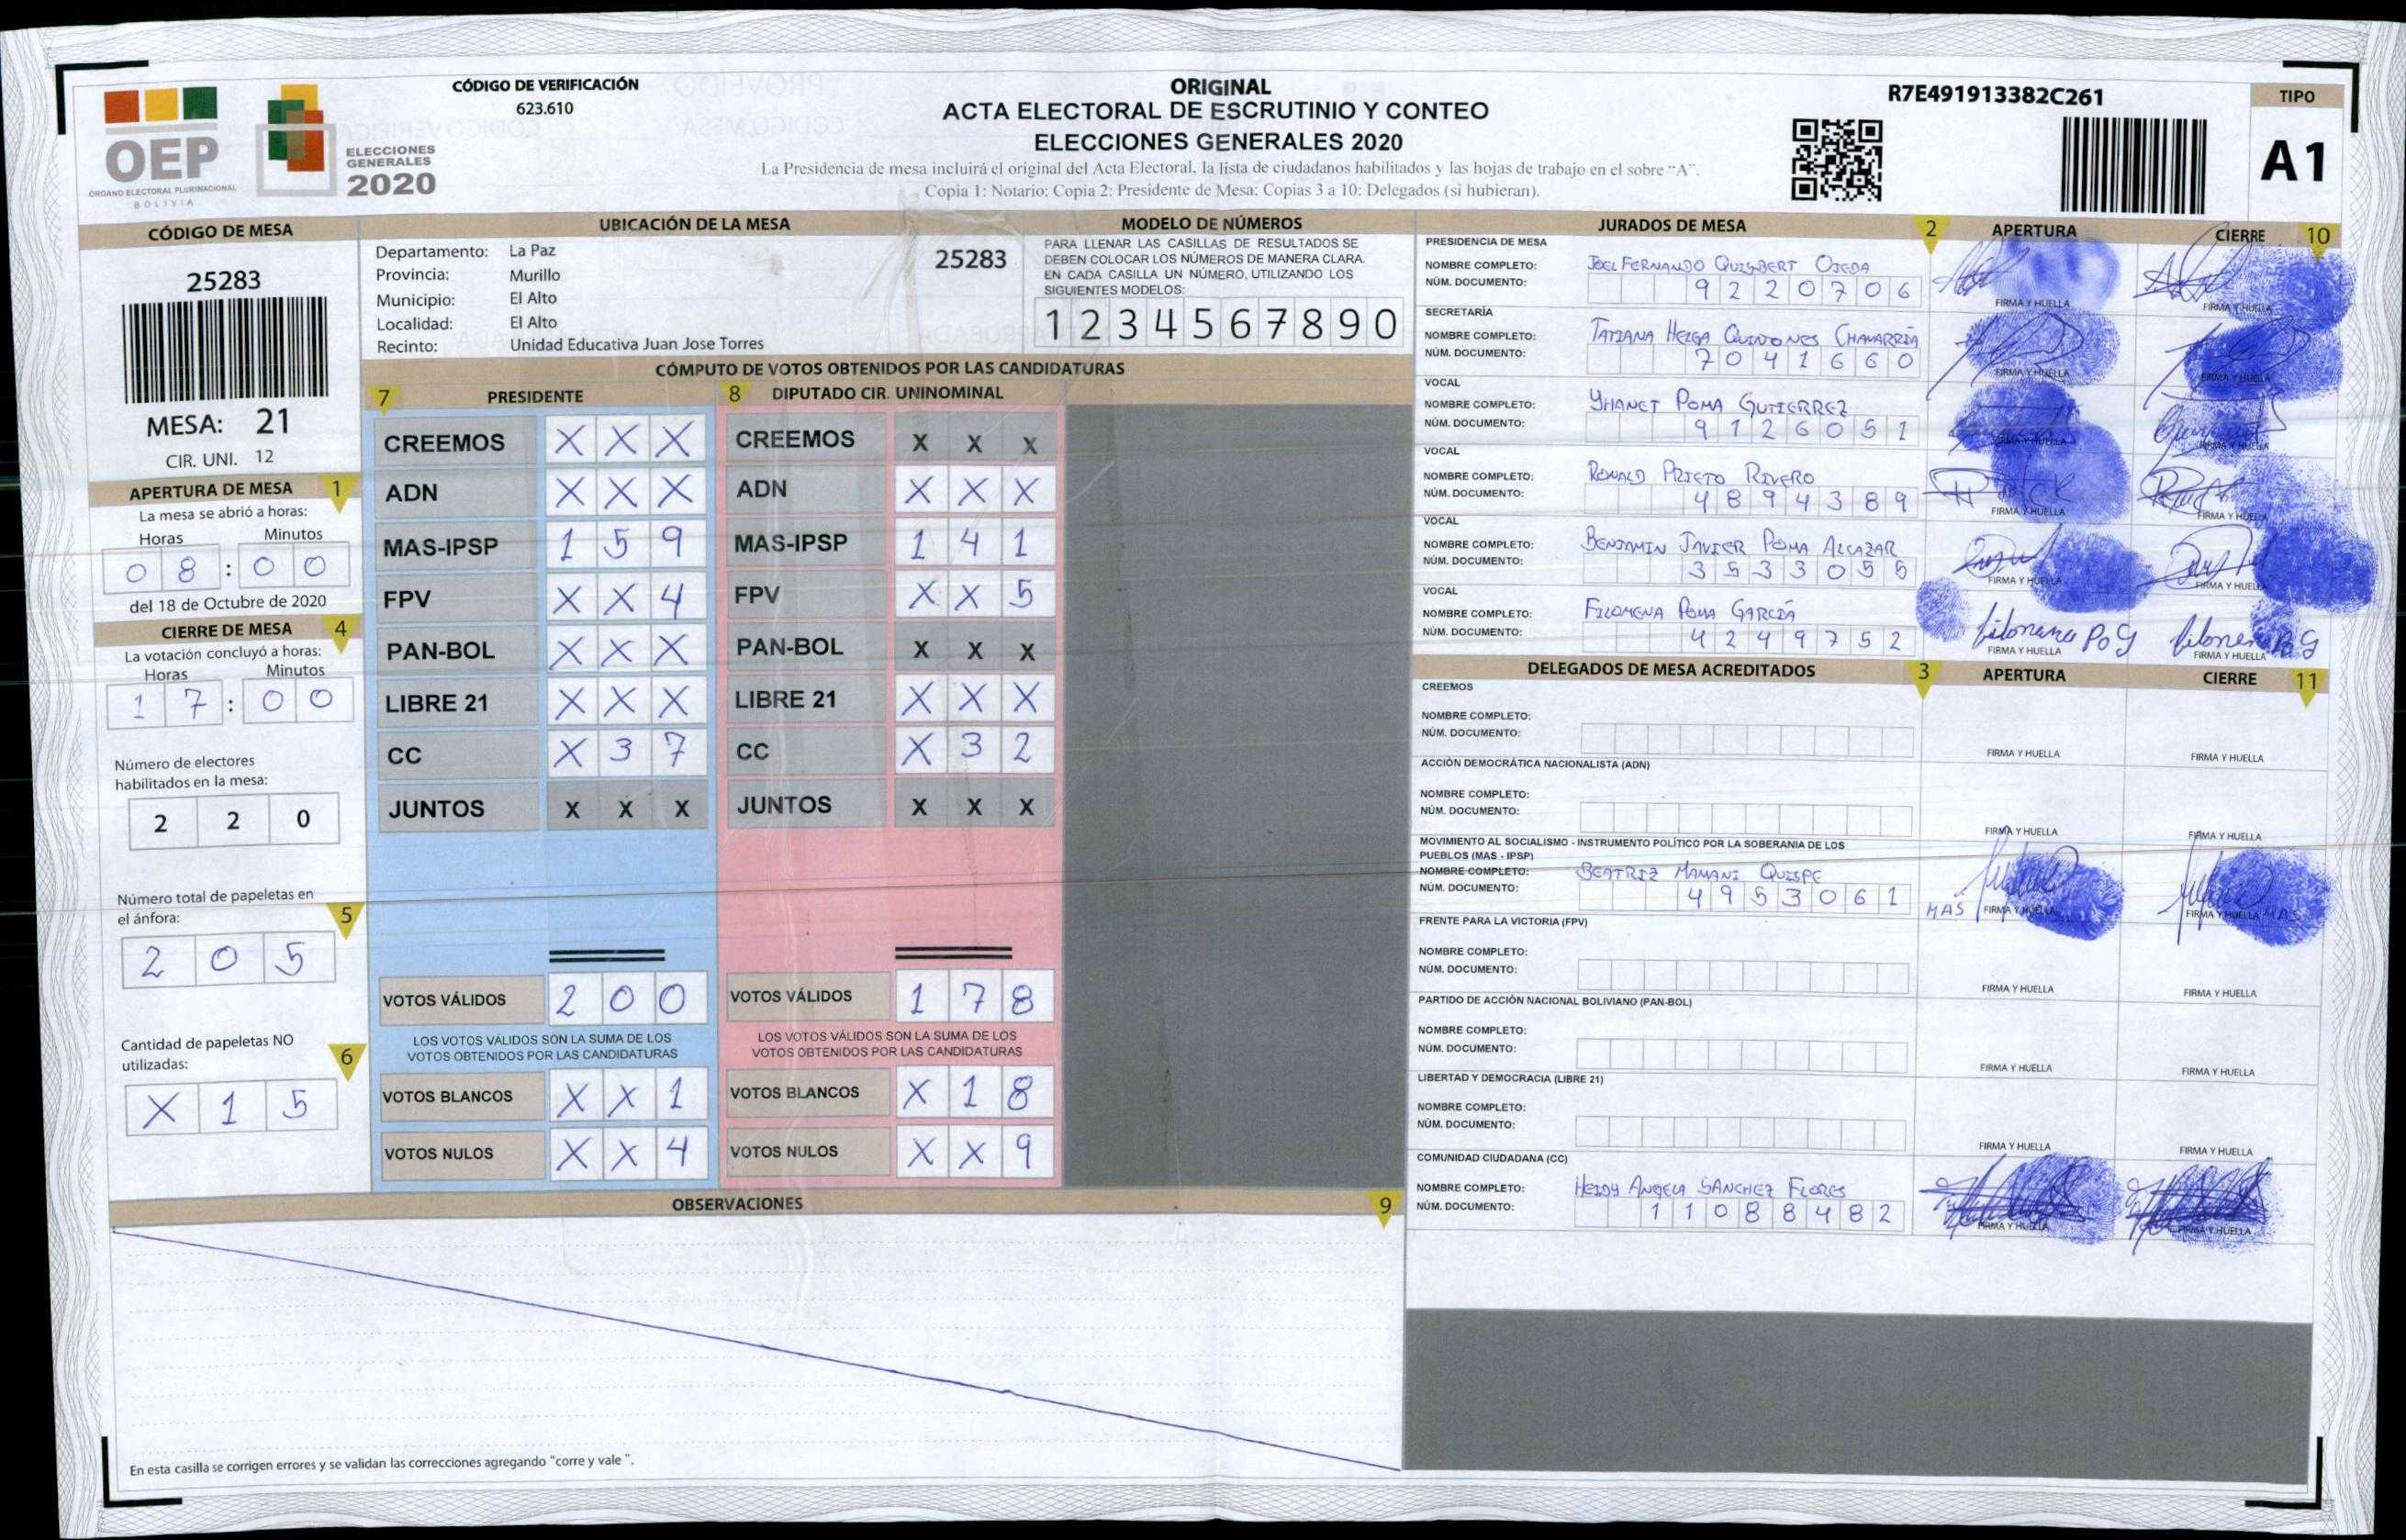 OEP
ÓRGANO ELECTORAL PLURINACIONAL
BOLIVIA
ELECCIONES
GENERALES
2020
CÓDIGO DE VERIFICACIÓN
623.610
ORIGINAL
ACTA ELECTORAL DE ESCRUTINIO Y CONTEO
ELECCIONES GENERALES 2020
La Presidencia de mesa incluirá el original del Acta Electoral, la lista de ciudadanos habilitados y las hojas de trabajo en el sobre "A".
Copia 1: Notario; Copia 2: Presidente de Mesa; Copias 3 a 10: Delegados (si hubieran).
R7E491913382C261
TIPO
A1
CÓDIGO DE MESA
25283
MESA: 21
CIR. UNI. 12
APERTURA DE MESA 1
La mesa se abrió a horas:
Horas Minutos
0 8 : 0 0
del 18 de Octubre de 2020
CIERRE DE MESA 4
La votación concluyó a horas:
Horas Minutos
1 7 : 0 0
Número de electores
habilitados en la mesa:
2 2 0
Número total de papeletas en
el ánfora: 5
2 0 5
Cantidad de papeletas NO
utilizadas: 6
X 1 5
UBICACIÓN DE LA MESA
Departamento: La Paz
25283
Provincia: Murillo
Municipio: El Alto
Localidad: El Alto
Recinto: Unidad Educativa Juan Jose Torres
MODELO DE NÚMEROS
PARA LLENAR LAS CASILLAS DE RESULTADOS SE
DEBEN COLOCAR LOS NÚMEROS DE MANERA CLARA.
EN CADA CASILLA UN NÚMERO, UTILIZANDO LOS
SIGUIENTES MODELOS:
1 2 3 4 5 6 7 8 9 0
CÓMPUTO DE VOTOS OBTENIDOS POR LAS CANDIDATURAS
7 PRESIDENTE
CREEMOS X X X
ADN X X X
MAS-IPSP 1 5 9
FPV X X 4
PAN-BOL X X X
LIBRE 21 X X X
CC X 3 7
JUNTOS X X X
VOTOS VÁLIDOS 2 0 0
LOS VOTOS VÁLIDOS SON LA SUMA DE LOS
VOTOS OBTENIDOS POR LAS CANDIDATURAS
VOTOS BLANCOS X X 1
VOTOS NULOS X X 4
8 DIPUTADO CIR. UNINOMINAL
CREEMOS X X X
ADN X X X
MAS-IPSP 1 4 1
FPV X X 5
PAN-BOL X X X
LIBRE 21 X X X
CC X 3 2
JUNTOS X X X
VOTOS VÁLIDOS 1 7 8
LOS VOTOS VÁLIDOS SON LA SUMA DE LOS
VOTOS OBTENIDOS POR LAS CANDIDATURAS
VOTOS BLANCOS X 1 8
VOTOS NULOS X X 9
OBSERVACIONES 9
En esta casilla se corrigen errores y se validan las correcciones agregando "corre y vale ".
JURADOS DE MESA 2 APERTURA CIERRE 10
PRESIDENCIA DE MESA
NOMBRE COMPLETO: JOEL FERNANDO QUISBERT OJEDA
NÚM. DOCUMENTO: 9 2 2 0 7 0 6
FIRMA Y HUELLA FIRMA Y HUELLA
SECRETARÍA
NOMBRE COMPLETO: TATIANA HELGA QUIÑONES CHAVARRÍA
NÚM. DOCUMENTO: 7 0 4 1 6 6 0
FIRMA Y HUELLA FIRMA Y HUELLA
VOCAL
NOMBRE COMPLETO: YHANET POMA GUTIERREZ
NÚM. DOCUMENTO: 9 1 2 6 0 5 1
FIRMA Y HUELLA FIRMA Y HUELLA
VOCAL
NOMBRE COMPLETO: RONALD PRIETO RIVERO
NÚM. DOCUMENTO: 4 8 9 4 3 8 9
FIRMA Y HUELLA FIRMA Y HUELLA
VOCAL
NOMBRE COMPLETO: BENJAMIN JAVIER POMA ALCAZAR
NÚM. DOCUMENTO: 3 5 3 3 0 5 5
FIRMA Y HUELLA FIRMA Y HUELLA
VOCAL
NOMBRE COMPLETO: FILOMENA POMA GARCÍA
NÚM. DOCUMENTO: 4 2 4 9 7 5 2
filomena PoG
FIRMA Y HUELLA FIRMA Y HUELLA
DELEGADOS DE MESA ACREDITADOS 3 APERTURA CIERRE 11
CREEMOS
NOMBRE COMPLETO:
NÚM. DOCUMENTO:
FIRMA Y HUELLA FIRMA Y HUELLA
ACCIÓN DEMOCRÁTICA NACIONALISTA (ADN)
NOMBRE COMPLETO:
NÚM. DOCUMENTO:
FIRMA Y HUELLA FIRMA Y HUELLA
MOVIMIENTO AL SOCIALISMO - INSTRUMENTO POLÍTICO POR LA SOBERANIA DE LOS
PUEBLOS (MAS - IPSP)
NOMBRE COMPLETO: BEATRIZ MAMANI QUISPE
NÚM. DOCUMENTO: 4 9 5 3 0 6 1
MAS FIRMA Y HUELLA FIRMA Y HUELLA MAS
FRENTE PARA LA VICTORIA (FPV)
NOMBRE COMPLETO:
NÚM. DOCUMENTO:
FIRMA Y HUELLA FIRMA Y HUELLA
PARTIDO DE ACCIÓN NACIONAL BOLIVIANO (PAN-BOL)
NOMBRE COMPLETO:
NÚM. DOCUMENTO:
FIRMA Y HUELLA FIRMA Y HUELLA
LIBERTAD Y DEMOCRACIA (LIBRE 21)
NOMBRE COMPLETO:
NÚM. DOCUMENTO:
FIRMA Y HUELLA FIRMA Y HUELLA
COMUNIDAD CIUDADANA (CC)
NOMBRE COMPLETO: HEIDY ANGELA SANCHEZ FLORES
NÚM. DOCUMENTO: 1 1 0 8 8 4 8 2
FIRMA Y HUELLA FIRMA Y HUELLA